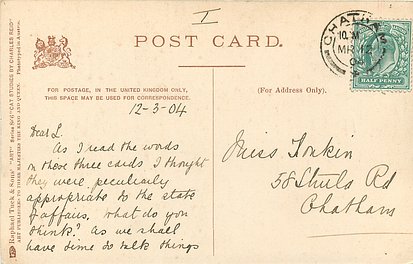 I
POST CARD.
FOR POSTAGE, IN THE UNITED KINGDOM ONLY,
THIS SPACE MAY BE USED FOR CORRESPONDENCE.
(For Address Only.)
12-3-04
Dear L.
As I read the words
on those three cards I thought
they were peculiarly
appropriate to the state
of affairs, what do you
think? As we shall
have time to talk things
Miss Tonkin
58 Rd
Chatham
CHATHAM
MR 12
04
HALF PENNY
Raphael Tuck & Sons' "ART" Series "CAT STUDIES BY CHARLES REID"
ART PUBLISHERS TO THEIR MAJESTIES THE KING AND QUEEN.